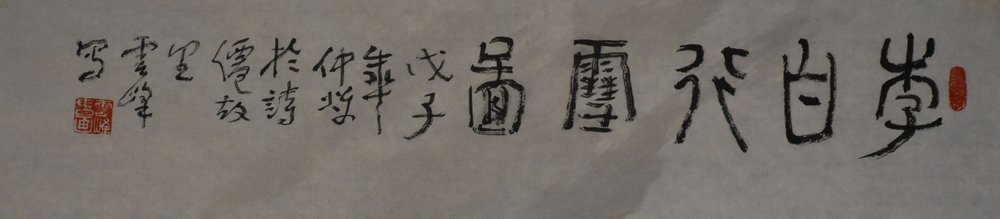 李白行圖
戊子
年
仲秋
於詩
僊故
里
雲峰
写